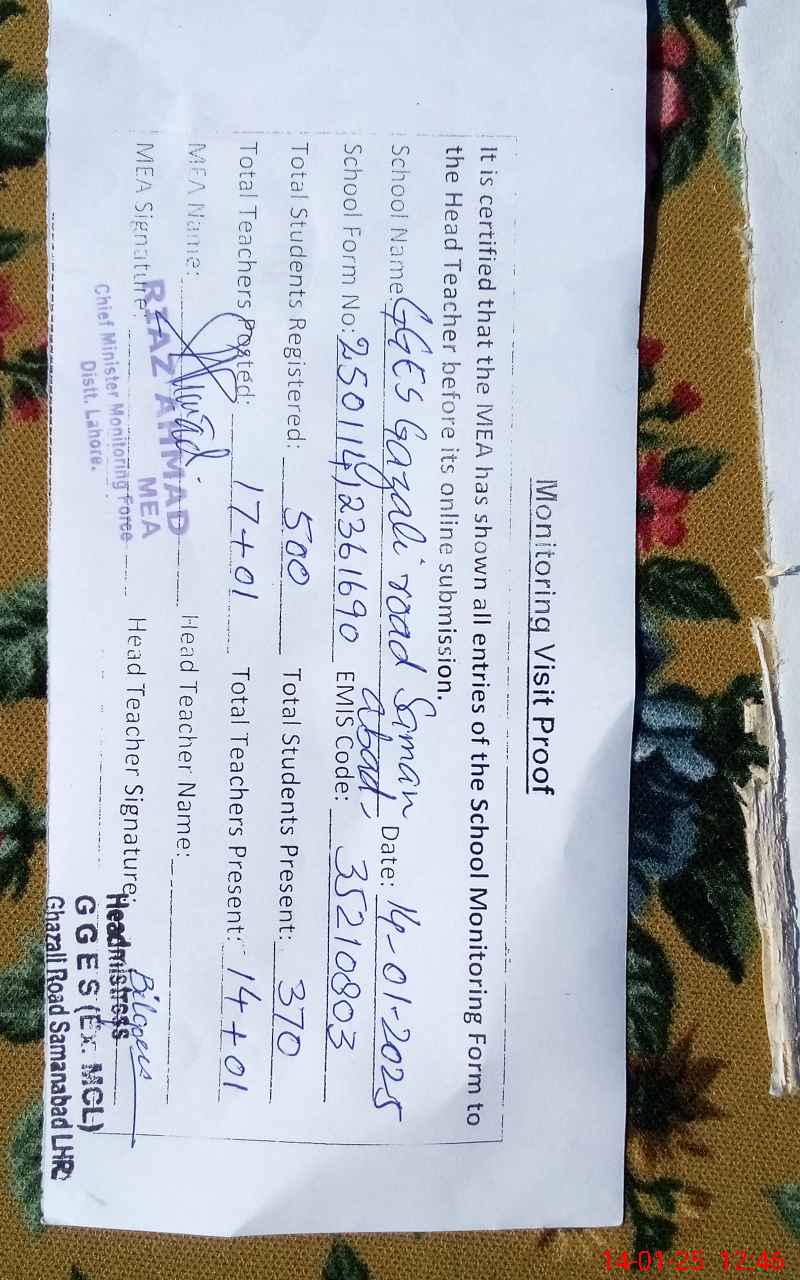 Monitoring Visit Proof
It is certified that the MEA has shown all entries of the School Monitoring Form to
the Head Teacher before its online submission.
School Name: GGES Gazali road Saman abad, Date: 14-01-2025
School Form No: 250114,2361690 EMIS Code: 35210803
Total Students Registered: 500 Total Students Present: 370
Total Teachers Posted: 17+01 Total Teachers Present: 14+01
MEA Name: Head Teacher Name:
MEA Signature: Head Teacher Signature: Bilqees
RIAZ AHMAD
MEA
Chief Minister Monitoring Force
Distt. Lahore.
Headmistress
GGES (Ex. MCL)
Ghazali Road Samanabad LHR
14-01-25 12:46